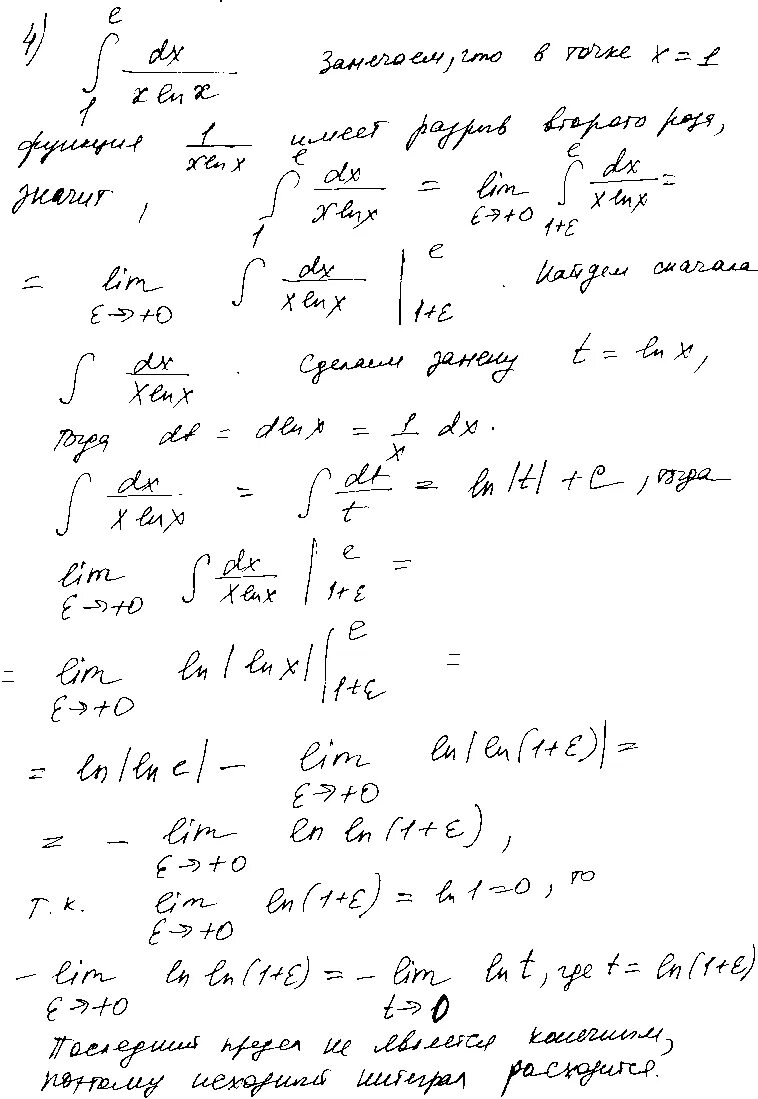 4) ∫₁ᵉ dx/(x ln x) Замечаем, что в точке x = 1
функция 1/(x ln x) имеет разрыв второго рода,
значит, ∫₁ᵉ dx/(x ln x) = lim_{ε→+0} ∫_{1+ε}^{e} dx/(x ln x) =
= lim_{ε→+0} ∫ dx/(x ln x) |_{1+ε}^{e} . Найдем сначала
∫ dx/(x ln x) . Сделаем замену t = ln x,
тогда dt = d ln x = 1/x dx.
∫ dx/(x ln x) = ∫ dt/t = ln|t| + C, тогда
lim_{ε→+0} ∫ dx/(x ln x) |_{1+ε}^{e} =
= lim_{ε→+0} ln|ln x| |_{1+ε}^{e} =
= ln|ln e| − lim_{ε→+0} ln|ln(1+ε)| =
= − lim_{ε→+0} ln ln(1+ε),
т.к. lim_{ε→+0} ln(1+ε) = ln 1 = 0, то
− lim_{ε→+0} ln ln(1+ε) = − lim_{t→0} ln t, где t = ln(1+ε)
Последний предел не является конечным,
поэтому исходный интеграл расходится.